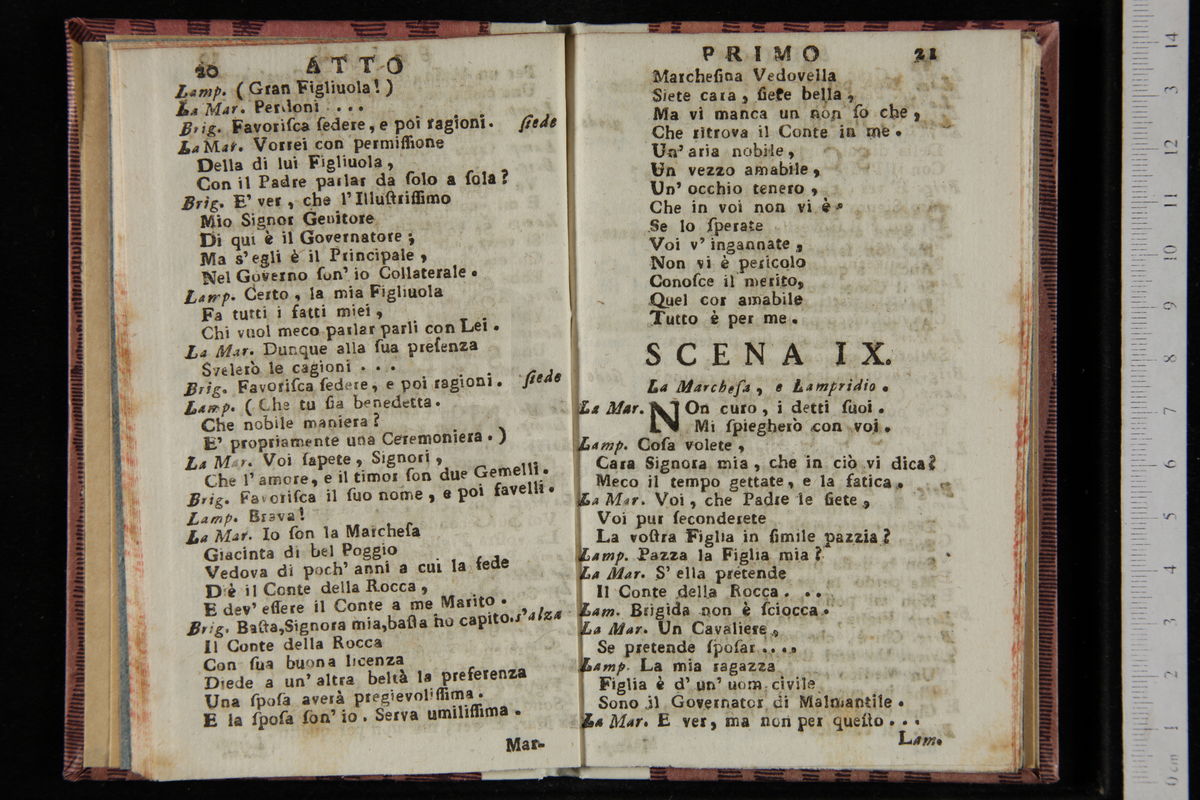 20 ATTO
Lamp. (Gran Figliuola!)
La Mar. Perdoni ...
Brig. Favoriſca ſedere, e poi ragioni. ſiede
La Mar. Vorrei con permiſſione
Della di lui Figliuola,
Con il Padre parlar da ſolo a ſola?
Brig. E' ver, che l'Illuſtriſſimo
Mio Signor Genitore
Di qui è il Governatore;
Ma s'egli è il Principale,
Nel Governo ſon' io Collaterale.
Lamp. Certo, la mia Figliuola
Fa tutti i fatti miei,
Chi vuol meco parlar parli con Lei.
La Mar. Dunque alla ſua preſenza
Svelerò le cagioni ...
Brig. Favoriſca ſedere, e poi ragioni. ſiede
Lamp. (Che tu ſia benedetta.
Che nobile maniera?
E' propriamente una Ceremoniera.)
La Mar. Voi ſapete, Signori,
Che l'amore, e il timor ſon due Gemelli.
Brig. Favoriſca il ſuo nome, e poi favelli.
Lamp. Brava!
La Mar. Io ſon la Marcheſa
Giacinta di bel Poggio
Vedova di poch' anni a cui la fede
Diè il Conte della Rocca,
E dev' eſſere il Conte a me Marito.
Brig. Baſta, Signora mia, baſta ho capito. s'alza
Il Conte della Rocca
Con ſua buona licenza
Diede a un' altra beltà la preferenza
Una ſpoſa averà pregievoliſſima.
E la ſpoſa ſon' io. Serva umiliſſima.
Mar-
PRIMO 21
Marcheſina Vedovella
Siete cara, ſiete bella,
Ma vi manca un non ſo che,
Che ritrova il Conte in me.
Un' aria nobile,
Un vezzo amabile,
Un' occhio tenero,
Che in voi non vi è.
Se lo ſperate
Voi v' ingannate,
Non vi è pericolo
Conoſce il merito,
Quel cor amabile
Tutto è per me.
SCENA IX.
La Marcheſa, e Lampridio.
La Mar. NOn curo, i detti ſuoi.
Mi ſpiegherò con voi.
Lamp. Coſa volete,
Cara Signora mia, che in ciò vi dica?
Meco il tempo gettate, e la fatica.
La Mar. Voi, che Padre le ſiete,
Voi pur ſeconderete
La voſtra Figlia in ſimile pazzia?
Lamp. Pazza la Figlia mia?
La Mar. S' ella pretende
Il Conte della Rocca. ..
Lam. Brigida non è ſciocca.
La Mar. Un Cavaliere,
Se pretende ſpoſar....
Lamp. La mia ragazza
Figlia è d' un' uom civile
Sono il Governator di Malmantile.
La Mar. E ver, ma non per queſto...
Lam.